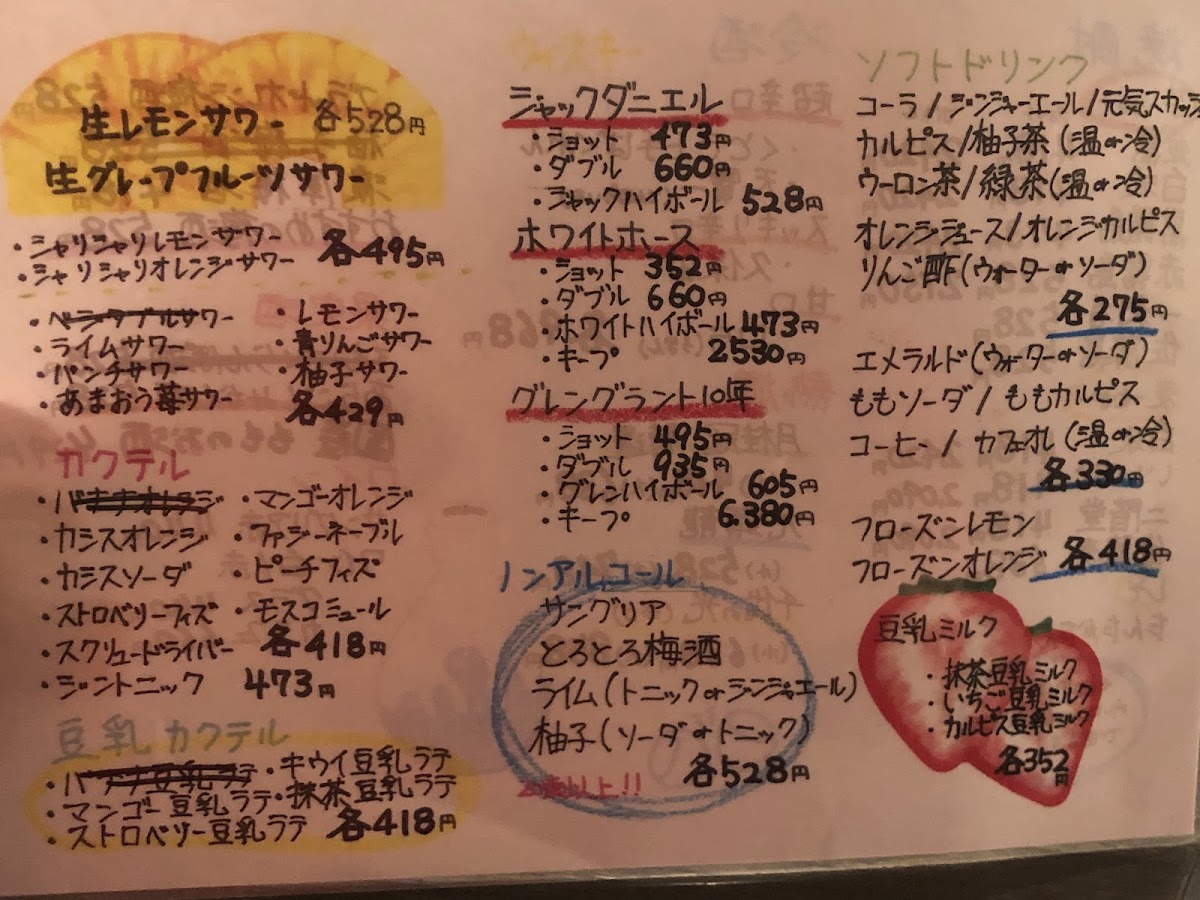 生レモンサワー 各528円
生グレープフルーツサワー
・シャリシャリレモンサワー
・シャリシャリオレンジサワー 各495円
・ベジタブルサワー ・レモンサワー
・ライムサワー ・青りんごサワー
・パンチサワー ・柚子サワー
・あまおう苺サワー 各429円
カクテル
・バナナオレンジ ・マンゴーオレンジ
・カシスオレンジ ・ファジーネーブル
・カシスソーダ ・ピーチフィズ
・ストロベリーフィズ ・モスコミュール
・スクリュードライバー 各418円
・ジントニック 473円
豆乳カクテル
・バナナ豆乳ラテ ・キウイ豆乳ラテ
・マンゴー豆乳ラテ ・抹茶豆乳ラテ
・ストロベリー豆乳ラテ 各418円
ウィスキー
ジャックダニエル
・ショット 473円
・ダブル 660円
・ジャックハイボール 528円
ホワイトホース
・ショット 352円
・ダブル 660円
・ホワイトハイボール 473円
・キープ 2530円
グレングラント10年
・ショット 495円
・ダブル 935円
・グレンハイボール 605円
・キープ 6.380円
ノンアルコール
サングリア
とろとろ梅酒
ライム(トニックorジンジャエール)
柚子(ソーダorトニック)
各528円
20歳以上!!
ソフトドリンク
コーラ/ジンジャーエール/元気スカッシ
カルピス/柚子茶(温or冷)
ウーロン茶/緑茶(温or冷)
オレンジジュース/オレンジカルピス
りんご酢(ウォーターorソーダ)
各275円
エメラルド(ウォーターorソーダ)
ももソーダ/ももカルピス
コーヒー/カフェオレ(温or冷)
各330円
フローズンレモン
フローズンオレンジ 各418円
豆乳ミルク
・抹茶豆乳ミルク
・いちご豆乳ミルク
・カルピス豆乳ミルク
各352円